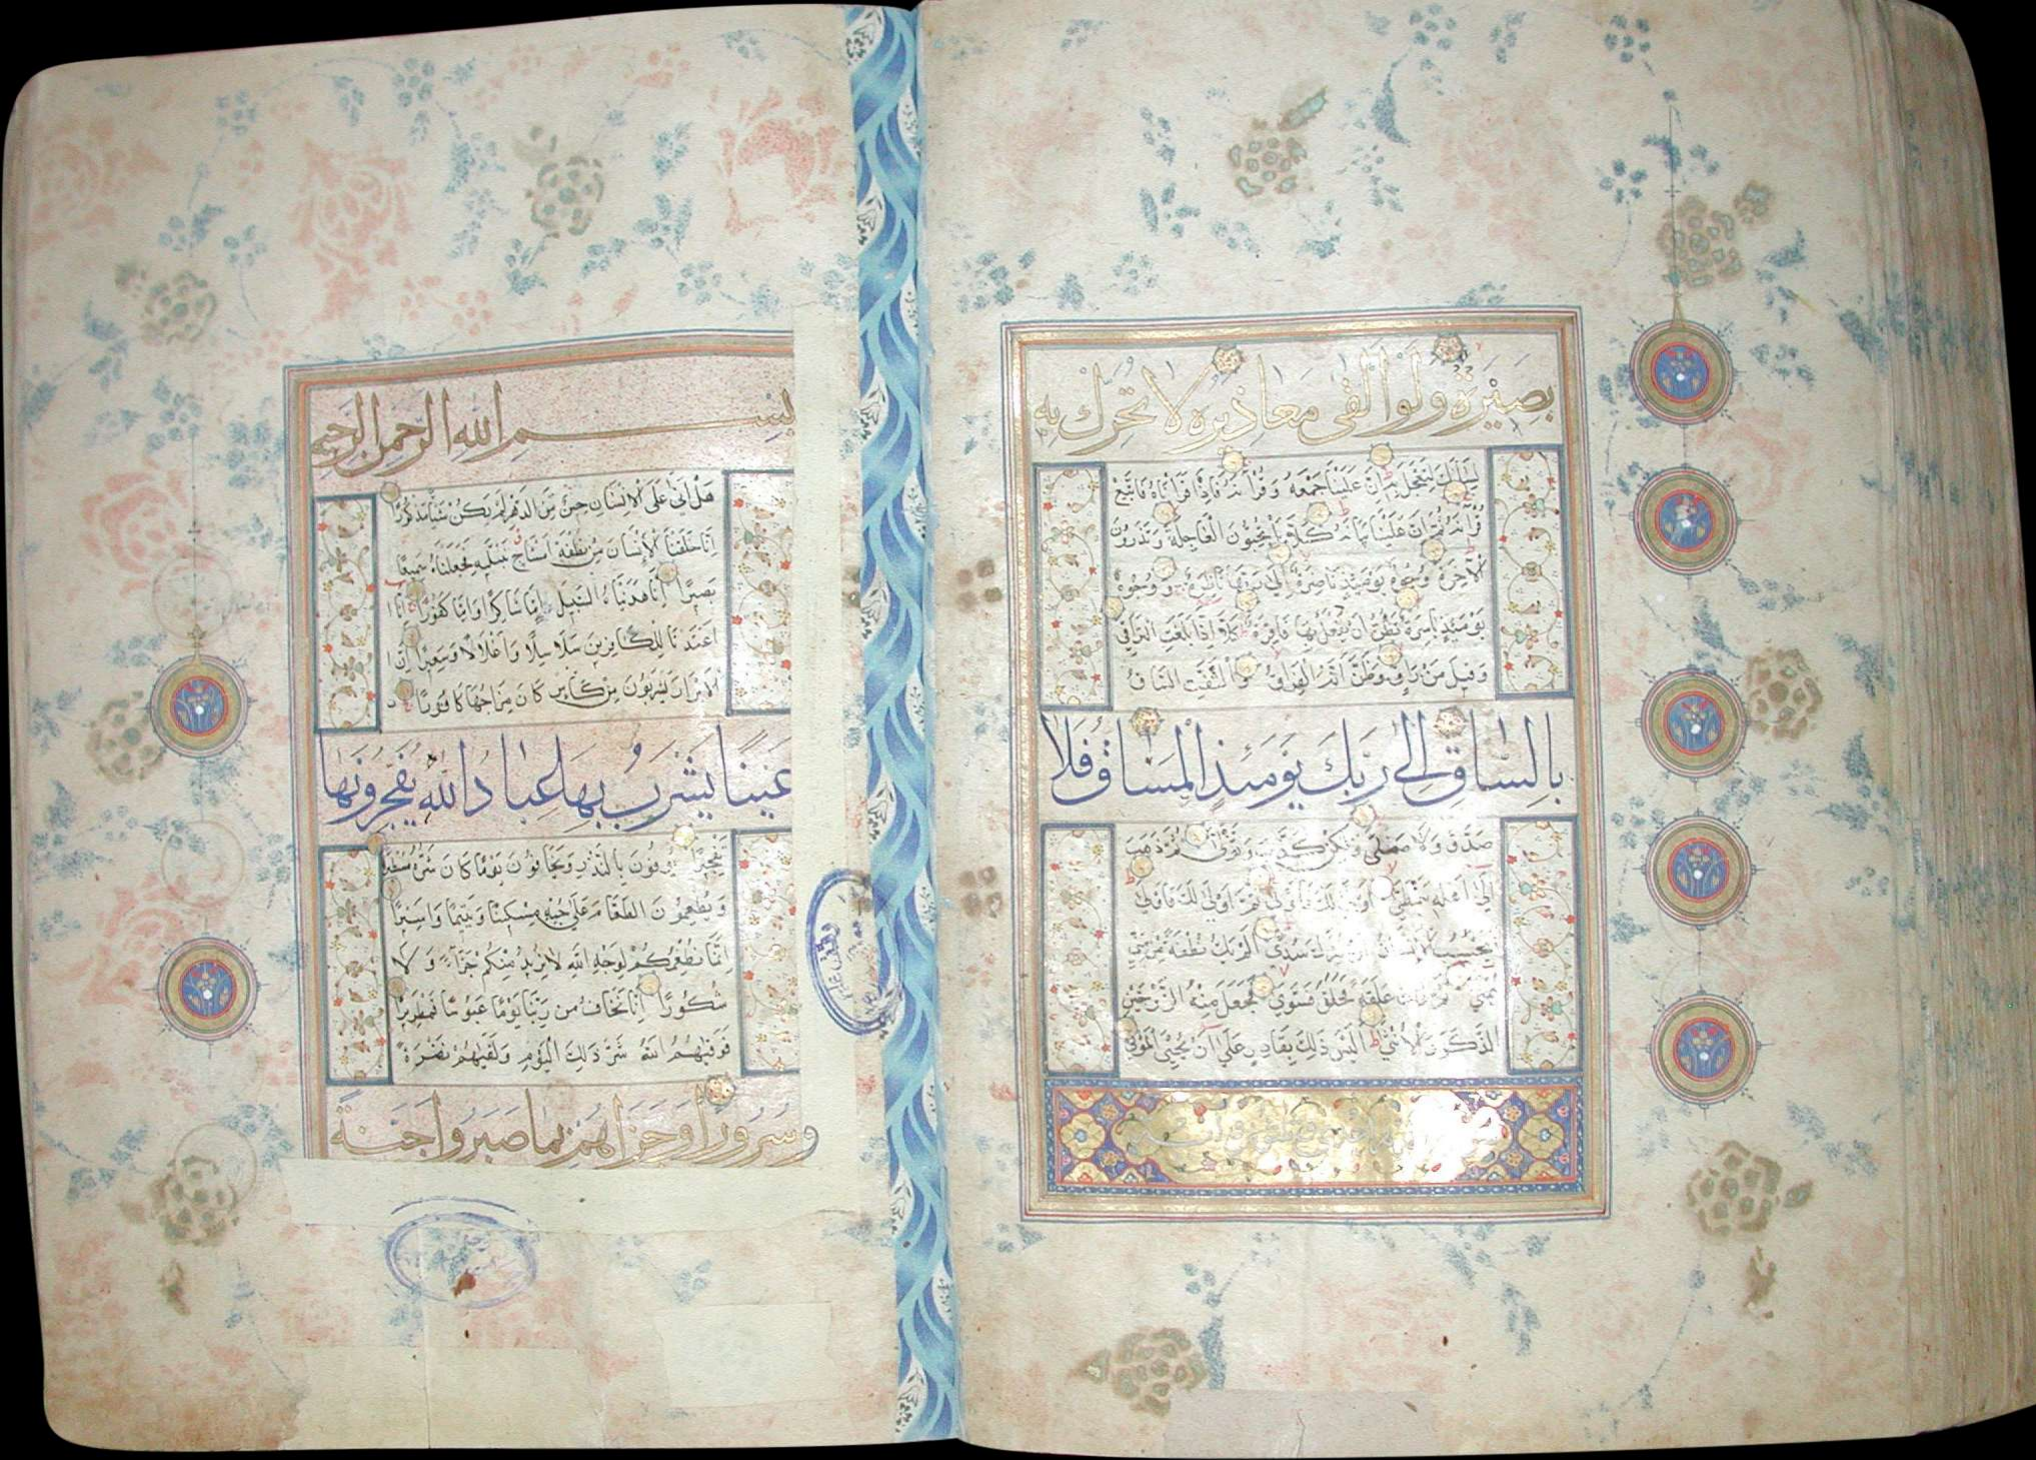 بَصِيرَةٌ وَلَوْ أَلْقَى مَعَاذِيرَهُ لَا تُحَرِّكْ بِهِ
لِسَانَكَ لِتَعْجَلَ بِهِ إِنَّ عَلَيْنَا جَمْعَهُ وَقُرْآنَهُ فَإِذَا قَرَأْنَاهُ فَاتَّبِعْ
قُرْآنَهُ ثُمَّ إِنَّ عَلَيْنَا بَيَانَهُ كَلَّا بَلْ تُحِبُّونَ الْعَاجِلَةَ وَتَذَرُونَ
الْآخِرَةَ وُجُوهٌ يَوْمَئِذٍ نَاضِرَةٌ إِلَى رَبِّهَا نَاظِرَةٌ وَوُجُوهٌ
يَوْمَئِذٍ بَاسِرَةٌ تَظُنُّ أَنْ يُفْعَلَ بِهَا فَاقِرَةٌ كَلَّا إِذَا بَلَغَتِ التَّرَاقِيَ
وَقِيلَ مَنْ رَاقٍ وَظَنَّ أَنَّهُ الْفِرَاقُ وَالْتَفَّتِ السَّاقُ
بِالسَّاقِ إِلَى رَبِّكَ يَوْمَئِذٍ الْمَسَاقُ فَلَا
صَدَّقَ وَلَا صَلَّى وَلَكِنْ كَذَّبَ وَتَوَلَّى ثُمَّ ذَهَبَ
إِلَى أَهْلِهِ يَتَمَطَّى أَوْلَى لَكَ فَأَوْلَى ثُمَّ أَوْلَى لَكَ فَأَوْلَى
أَيَحْسَبُ الْإِنْسَانُ أَنْ يُتْرَكَ سُدًى أَلَمْ يَكُ نُطْفَةً مِنْ مَنِيٍّ
يُمْنَى ثُمَّ كَانَ عَلَقَةً فَخَلَقَ فَسَوَّى فَجَعَلَ مِنْهُ الزَّوْجَيْنِ
الذَّكَرَ وَالْأُنْثَى أَلَيْسَ ذَلِكَ بِقَادِرٍ عَلَى أَنْ يُحْيِيَ الْمَوْتَى
بِسْمِ اللَّهِ الرَّحْمَنِ الرَّحِيمِ
هَلْ أَتَى عَلَى الْإِنْسَانِ حِينٌ مِنَ الدَّهْرِ لَمْ يَكُنْ شَيْئًا مَذْكُورًا
إِنَّا خَلَقْنَا الْإِنْسَانَ مِنْ نُطْفَةٍ أَمْشَاجٍ نَبْتَلِيهِ فَجَعَلْنَاهُ سَمِيعًا
بَصِيرًا إِنَّا هَدَيْنَاهُ السَّبِيلَ إِمَّا شَاكِرًا وَإِمَّا كَفُورًا إِنَّا
أَعْتَدْنَا لِلْكَافِرِينَ سَلَاسِلًا وَأَغْلَالًا وَسَعِيرًا إِنَّ
الْأَبْرَارَ يَشْرَبُونَ مِنْ كَأْسٍ كَانَ مِزَاجُهَا كَافُورًا
عَيْنًا يَشْرَبُ بِهَا عِبَادُ اللَّهِ يُفَجِّرُونَهَا
تَفْجِيرًا يُوفُونَ بِالنَّذْرِ وَيَخَافُونَ يَوْمًا كَانَ شَرُّهُ مُسْتَطِيرًا
وَيُطْعِمُونَ الطَّعَامَ عَلَى حُبِّهِ مِسْكِينًا وَيَتِيمًا وَأَسِيرًا
إِنَّمَا نُطْعِمُكُمْ لِوَجْهِ اللَّهِ لَا نُرِيدُ مِنْكُمْ جَزَاءً وَلَا
شُكُورًا إِنَّا نَخَافُ مِنْ رَبِّنَا يَوْمًا عَبُوسًا قَمْطَرِيرًا
فَوَقَيهُمُ اللَّهُ شَرَّ ذَلِكَ الْيَوْمِ وَلَقَّيهُمْ نَضْرَةً
وَسُرُورًا وَجَزَاهُمْ بِمَا صَبَرُوا جَنَّةً